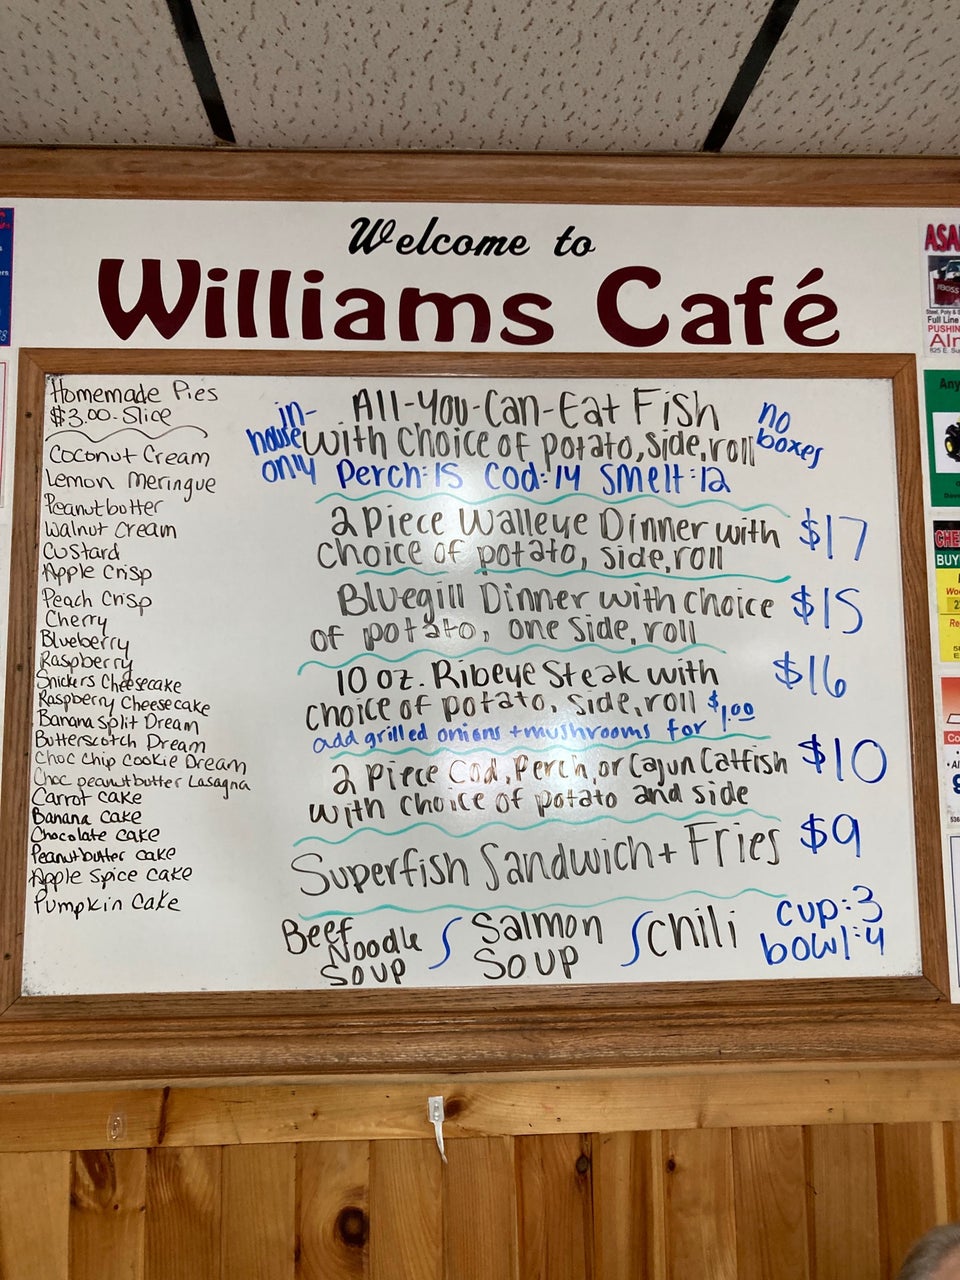 Welcome to
Williams Café
Homemade Pies
$3.00-Slice
Coconut Cream
Lemon Meringue
Peanutbutter
Walnut Cream
Custard
Apple Crisp
Peach Crisp
Cherry
Blueberry
Raspberry
Snickers Cheesecake
Raspberry Cheesecake
Banana Split Dream
Butterscotch Dream
Choc Chip Cookie Dream
Choc peanutbutter Lasagna
Carrot cake
Banana cake
Chocolate cake
Peanutbutter cake
Apple Spice cake
Pumpkin Cake
in-
house
only
All-You-Can-Eat Fish
with choice of potato, side, roll
no
boxes
Perch:15 Cod:14 Smelt:12
2 Piece Walleye Dinner with
choice of potato, side, roll
$17
Bluegill Dinner with choice
of potato, one side, roll
$15
10 oz. Ribeye Steak with
choice of potato, side, roll
$16
add grilled onions + mushrooms for $1.00
2 Piece Cod, Perch, or Cajun Catfish
with choice of potato and side
$10
Superfish Sandwich + Fries
$9
Beef Noodle
Soup
Salmon
Soup
Chili
cup:3
bowl:4
ASA
BOSS
Full Line
PUSHIN
Any
CHE
BUY